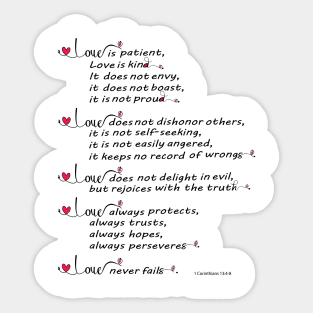 Love is patient,
Love is kind
It does not envy,
it does not boast,
it is not proud.
Love does not dishonor others,
it is not self-seeking,
it is not easily angered,
it keeps no record of wrongs.
Love does not delight in evil,
but rejoices with the truth.
Love always protects,
always trusts,
always hopes,
always perseveres.
Love never fails.
1 Corinthians 13:4-8